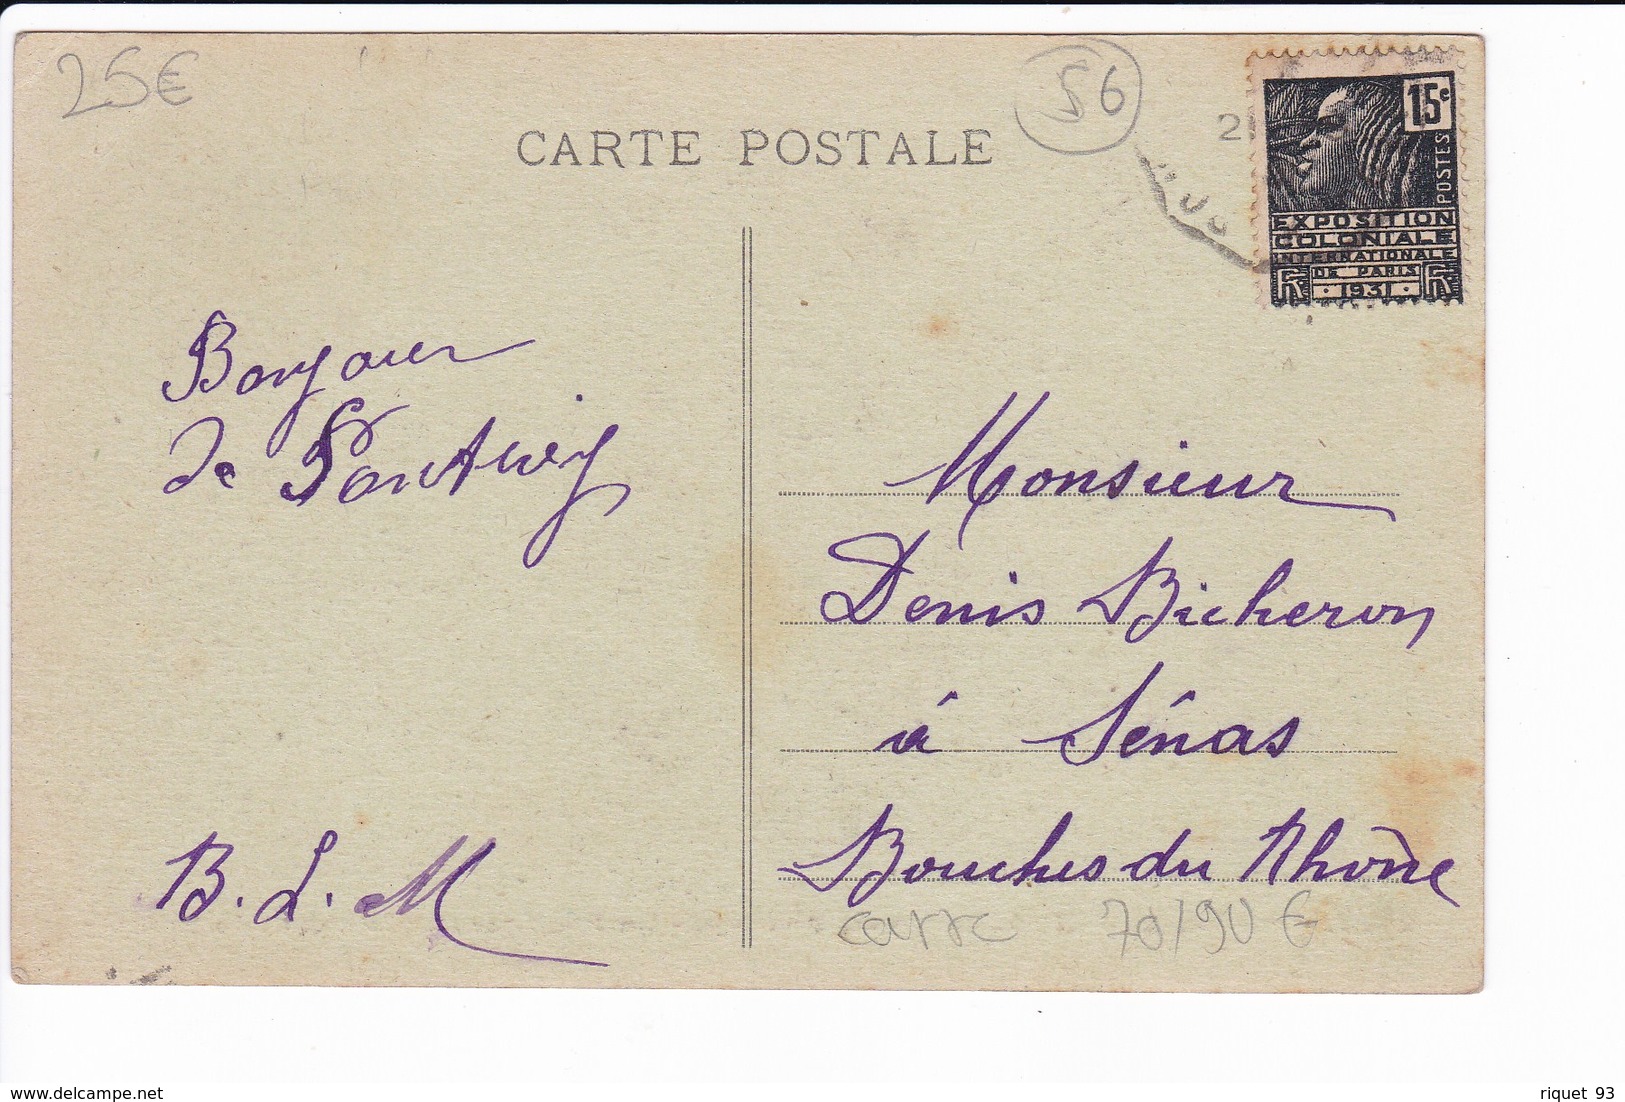 25€
56
CARTE POSTALE
2
15c
POSTES
EXPOSITION
COLONIALE
INTERNATIONALE
DE PARIS
1931
Bonjour
de Pontivy
B. L. M
Monsieur
Denis Bicheron
à Sénas
Bouches du Rhône
carre 70/90 €
www.delcampe.net
riquet 93